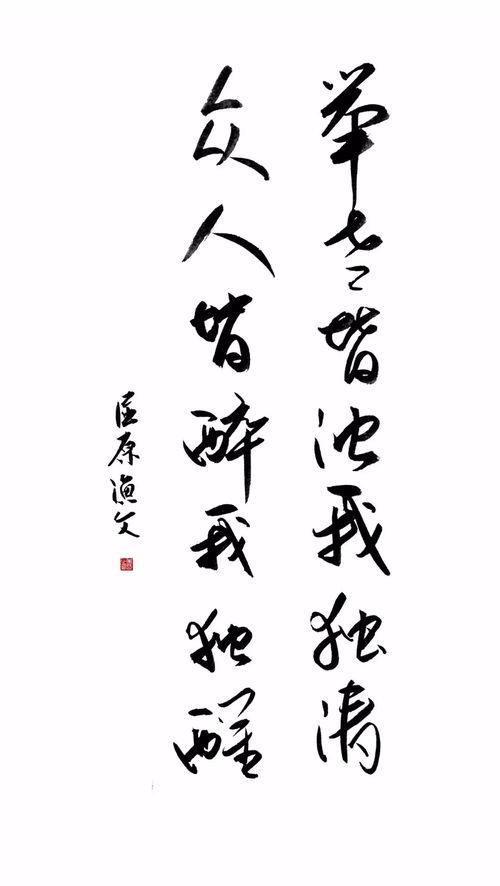 举世皆浊我独清
众人皆醉我独醒
屈原渔父